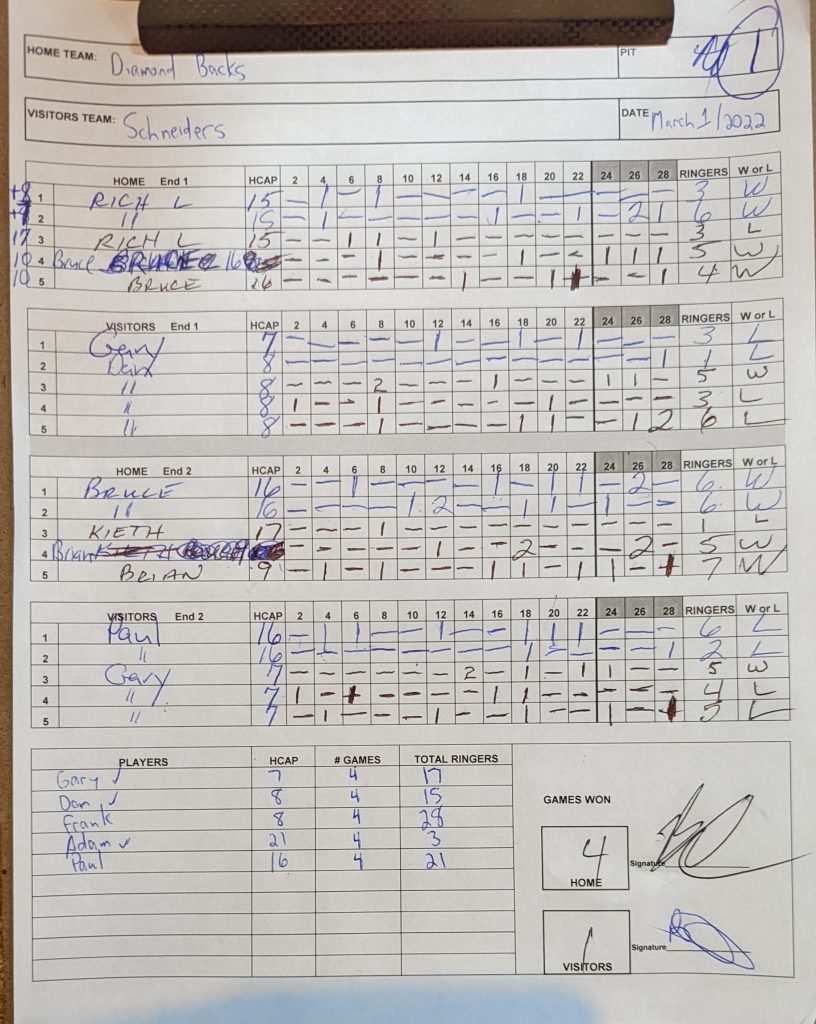 HOME TEAM: Diamond Backs PIT 1
VISITORS TEAM: Schneiders DATE March 1/2022
HOME End 1 HCAP 2 4 6 8 10 12 14 16 18 20 22 24 26 28 RINGERS W or L
+8 1 RICH L 15 – 1 – 1 – – – – 1 – – – – – 3 W
2 " 15 – 1 – – – – – 1 – – 1 – 2 1 6 W
17 3 RICH L 15 – – 1 1 – 1 – – – – – – – – 3 L
10 4 Bruce 16 – – – 1 – – – – 1 – – 1 1 1 5 W
10 5 BRUCE 16 – – – – – – 1 – – 1 1 – – 1 4 W
VISITORS End 1 HCAP 2 4 6 8 10 12 14 16 18 20 22 24 26 28 RINGERS W or L
1 Gary 7 – – – – – 1 – – 1 – 1 – – – 3 L
2 Dan 8 – – – – – – – – – – – – – 1 1 L
3 " 8 – – – 2 – – – 1 – – – 1 1 – 5 W
4 " 8 1 – – 1 – – – – – 1 – – – – 3 L
5 " 8 – – – 1 – – – – 1 1 – – 1 2 6 L
HOME End 2 HCAP 2 4 6 8 10 12 14 16 18 20 22 24 26 28 RINGERS W or L
1 BRUCE 16 – – 1 – – – – 1 – 1 1 – 2 – 6 W
2 " 16 – – – – 1 2 – – 1 1 – 1 – – 6 W
3 KIETH 17 – – – 1 – – – – – – – – – – 1 L
4 Brian – – – – – 1 – – 2 – – – 2 – 5 W
5 BRIAN 9 – 1 – 1 – – – 1 1 – 1 1 – 1 7 W
VISITORS End 2 HCAP 2 4 6 8 10 12 14 16 18 20 22 24 26 28 RINGERS W or L
1 Paul 16 – 1 1 – – 1 – – 1 1 1 – – – 6 L
2 " 16 – – – – – – – – 1 – – – – 1 2 L
3 Gary 7 – – – – – – 2 – 1 – 1 1 – – 5 W
4 " 7 1 – 1 – – – – 1 1 – – – – – 4 L
5 " 7 – 1 – – – 1 – – 1 – – 1 – 1 5 L
PLAYERS HCAP # GAMES TOTAL RINGERS
Gary ✓ 7 4 17
Dan ✓ 8 4 15
Frank 8 4 28
Adam ✓ 21 4 3
Paul 16 4 21
GAMES WON
4
HOME
Signature
1
VISITORS
Signature